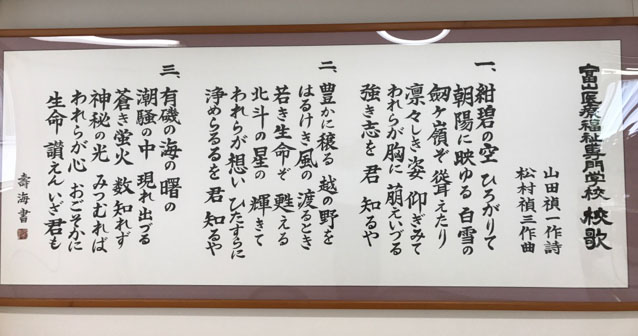 富山医療福祉専門学校 校歌
山田禎一作詩
松村禎三作曲
一、紺碧の空 ひろがりて
朝陽に映ゆる 白雪の
剱ケ嶺ぞ 聳えたり
凛々しき姿 仰ぎみて
われらが胸に 萠えいづる
強き志を 君 知るや
二、豊かに穣る 越の野を
はるけき風の 渡るとき
若き生命ぞ 甦える
北斗の星の 輝きて
われらが想い ひたすらに
浄めらるるを 君 知るや
三、有磯の海の 曙の
潮騒の中 現れ出づる
蒼き蛍火 数知れず
神秘の光 みつむれば
われらが心 おごそかに
生命 讃えん いざ 君も
壽海書